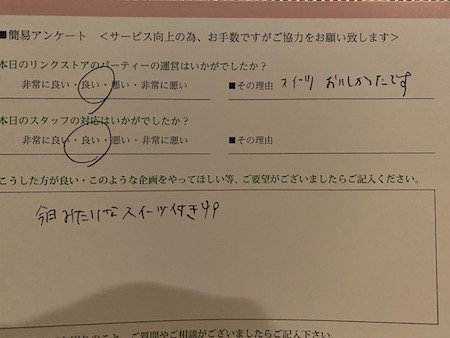 ■簡易アンケート ＜サービス向上の為、お手数ですがご協力をお願い致します＞
本日のリンクストアのパーティーの運営はいかがでしたか？
非常に良い・良い・悪い・非常に悪い ■その理由 スイーツ おいしかったです
本日のスタッフの対応はいかがでしたか？
非常に良い・良い・悪い・非常に悪い ■その理由
こうした方が良い・このような企画をやってほしい等、ご要望がございましたらご記入ください。
今日みたいなスイーツ付き
のこと、ご質問やご相談がございましたらご記入下さい。